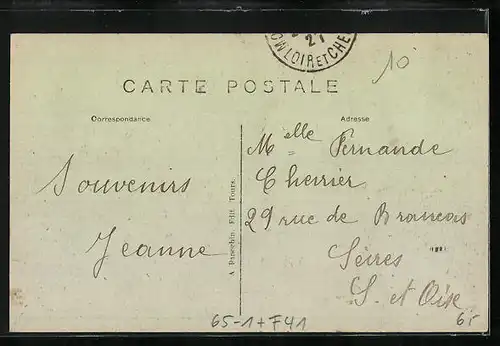 21
LOIR ET CHER
10
CARTE POSTALE
Correspondance
Adresse
Souvenirs
Jeanne
A. Papeghin. Edit. Tours.
Melle Fernande
Chevrier
29 rue de Brancas
Sèvres
S. et Oise
65-1+F41